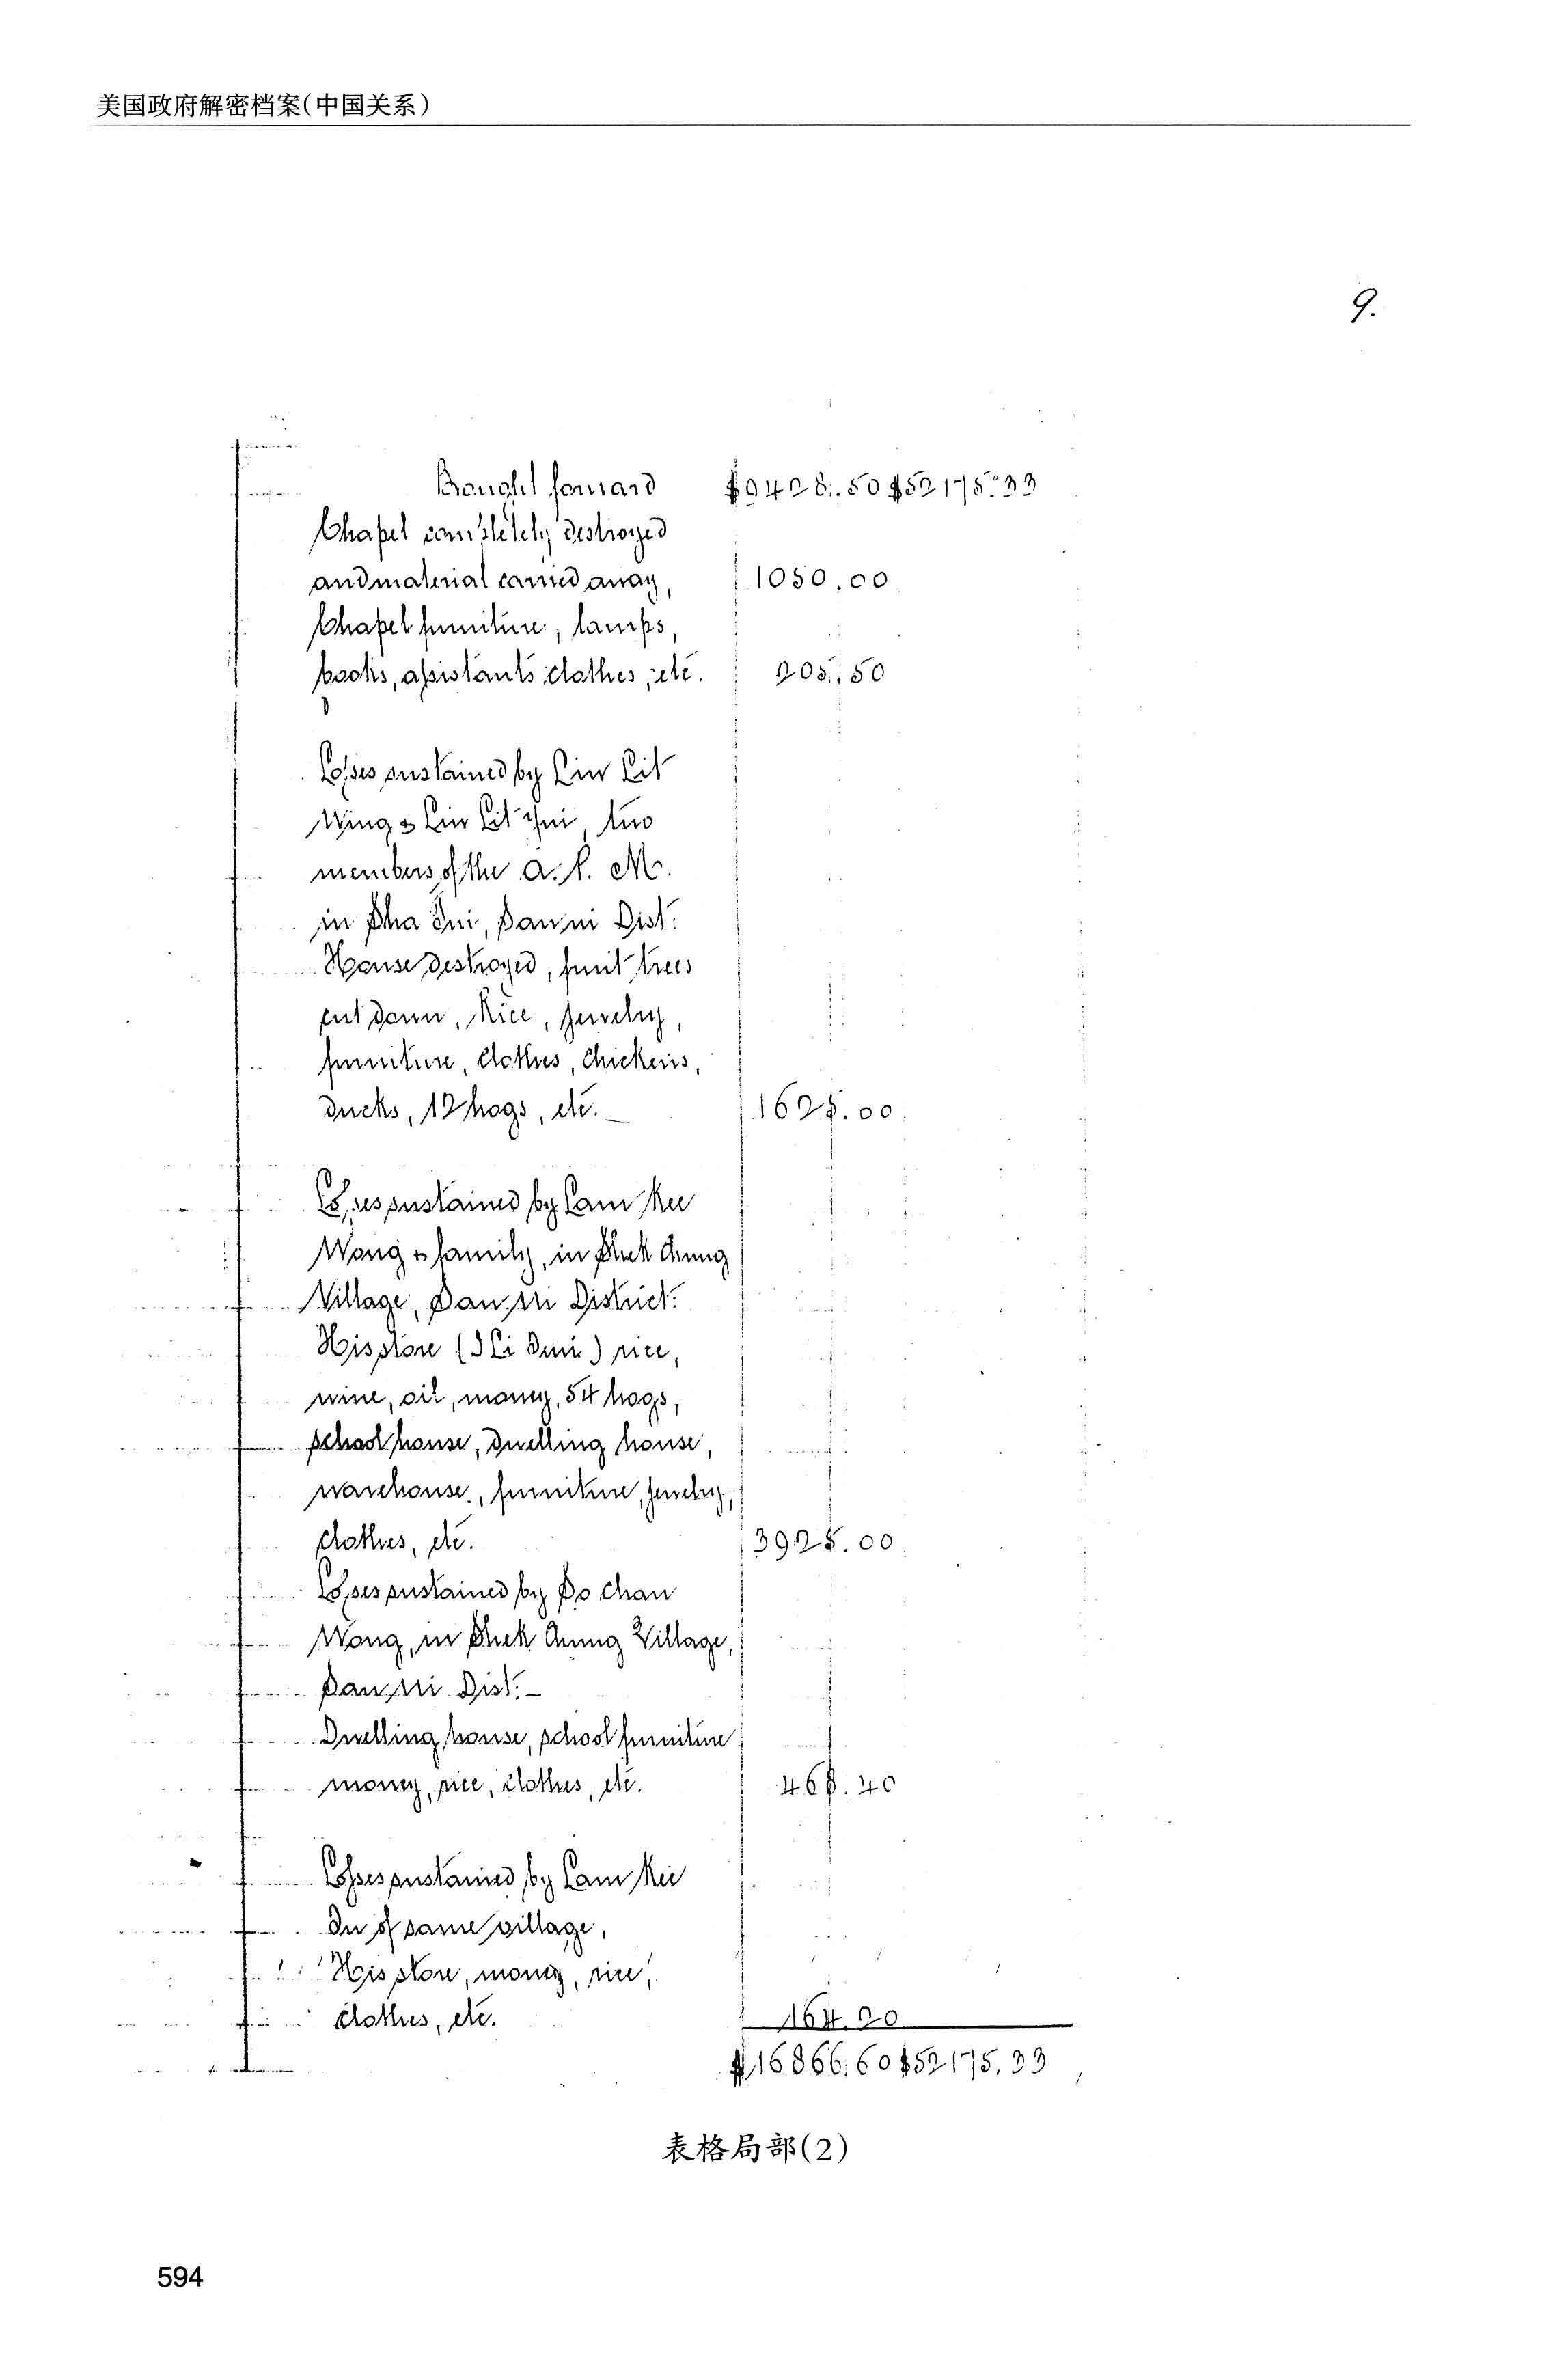 美国政府解密档案(中国关系)
9.
Brought forward $9428.50 $52175.33
Chapel completely destroyed
and material carried away, 1050.00
Chapel furniture, lamps,
books, assistant's clothes, etc. 205.50
Losses sustained by Liu Lit
& Liu Lit two
members of the A. P. M.
in Dist.
House destroyed, fruit trees
cut down, Rice, jewelry,
furniture, clothes, chickens,
ducks, 12 hogs, etc. — 1625.00
Losses sustained by Lam Kee
Wong & family, in
Village, District.
His store rice,
wine, oil, money, 54 hogs,
school house, dwelling house,
warehouse, furniture, jewelry,
clothes, etc. 3925.00
Losses sustained by Chan
Wong, in Village,
Dist. —
Dwelling house, school furniture
money, rice, clothes, etc. 468.40
Losses sustained by Lam Kee
of same village,
His store, money, rice,
clothes, etc. 164.20
$16866.60 $52175.33
表格局部(2)
594